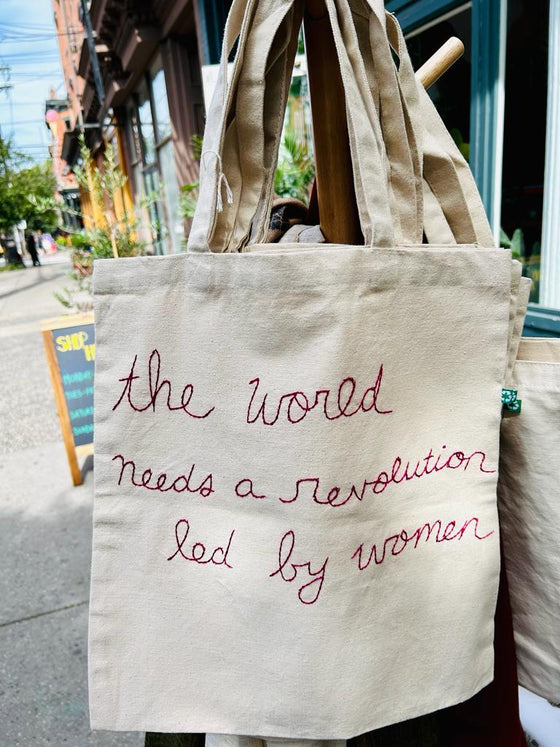 SHOP
the world
needs a revolution
led by women